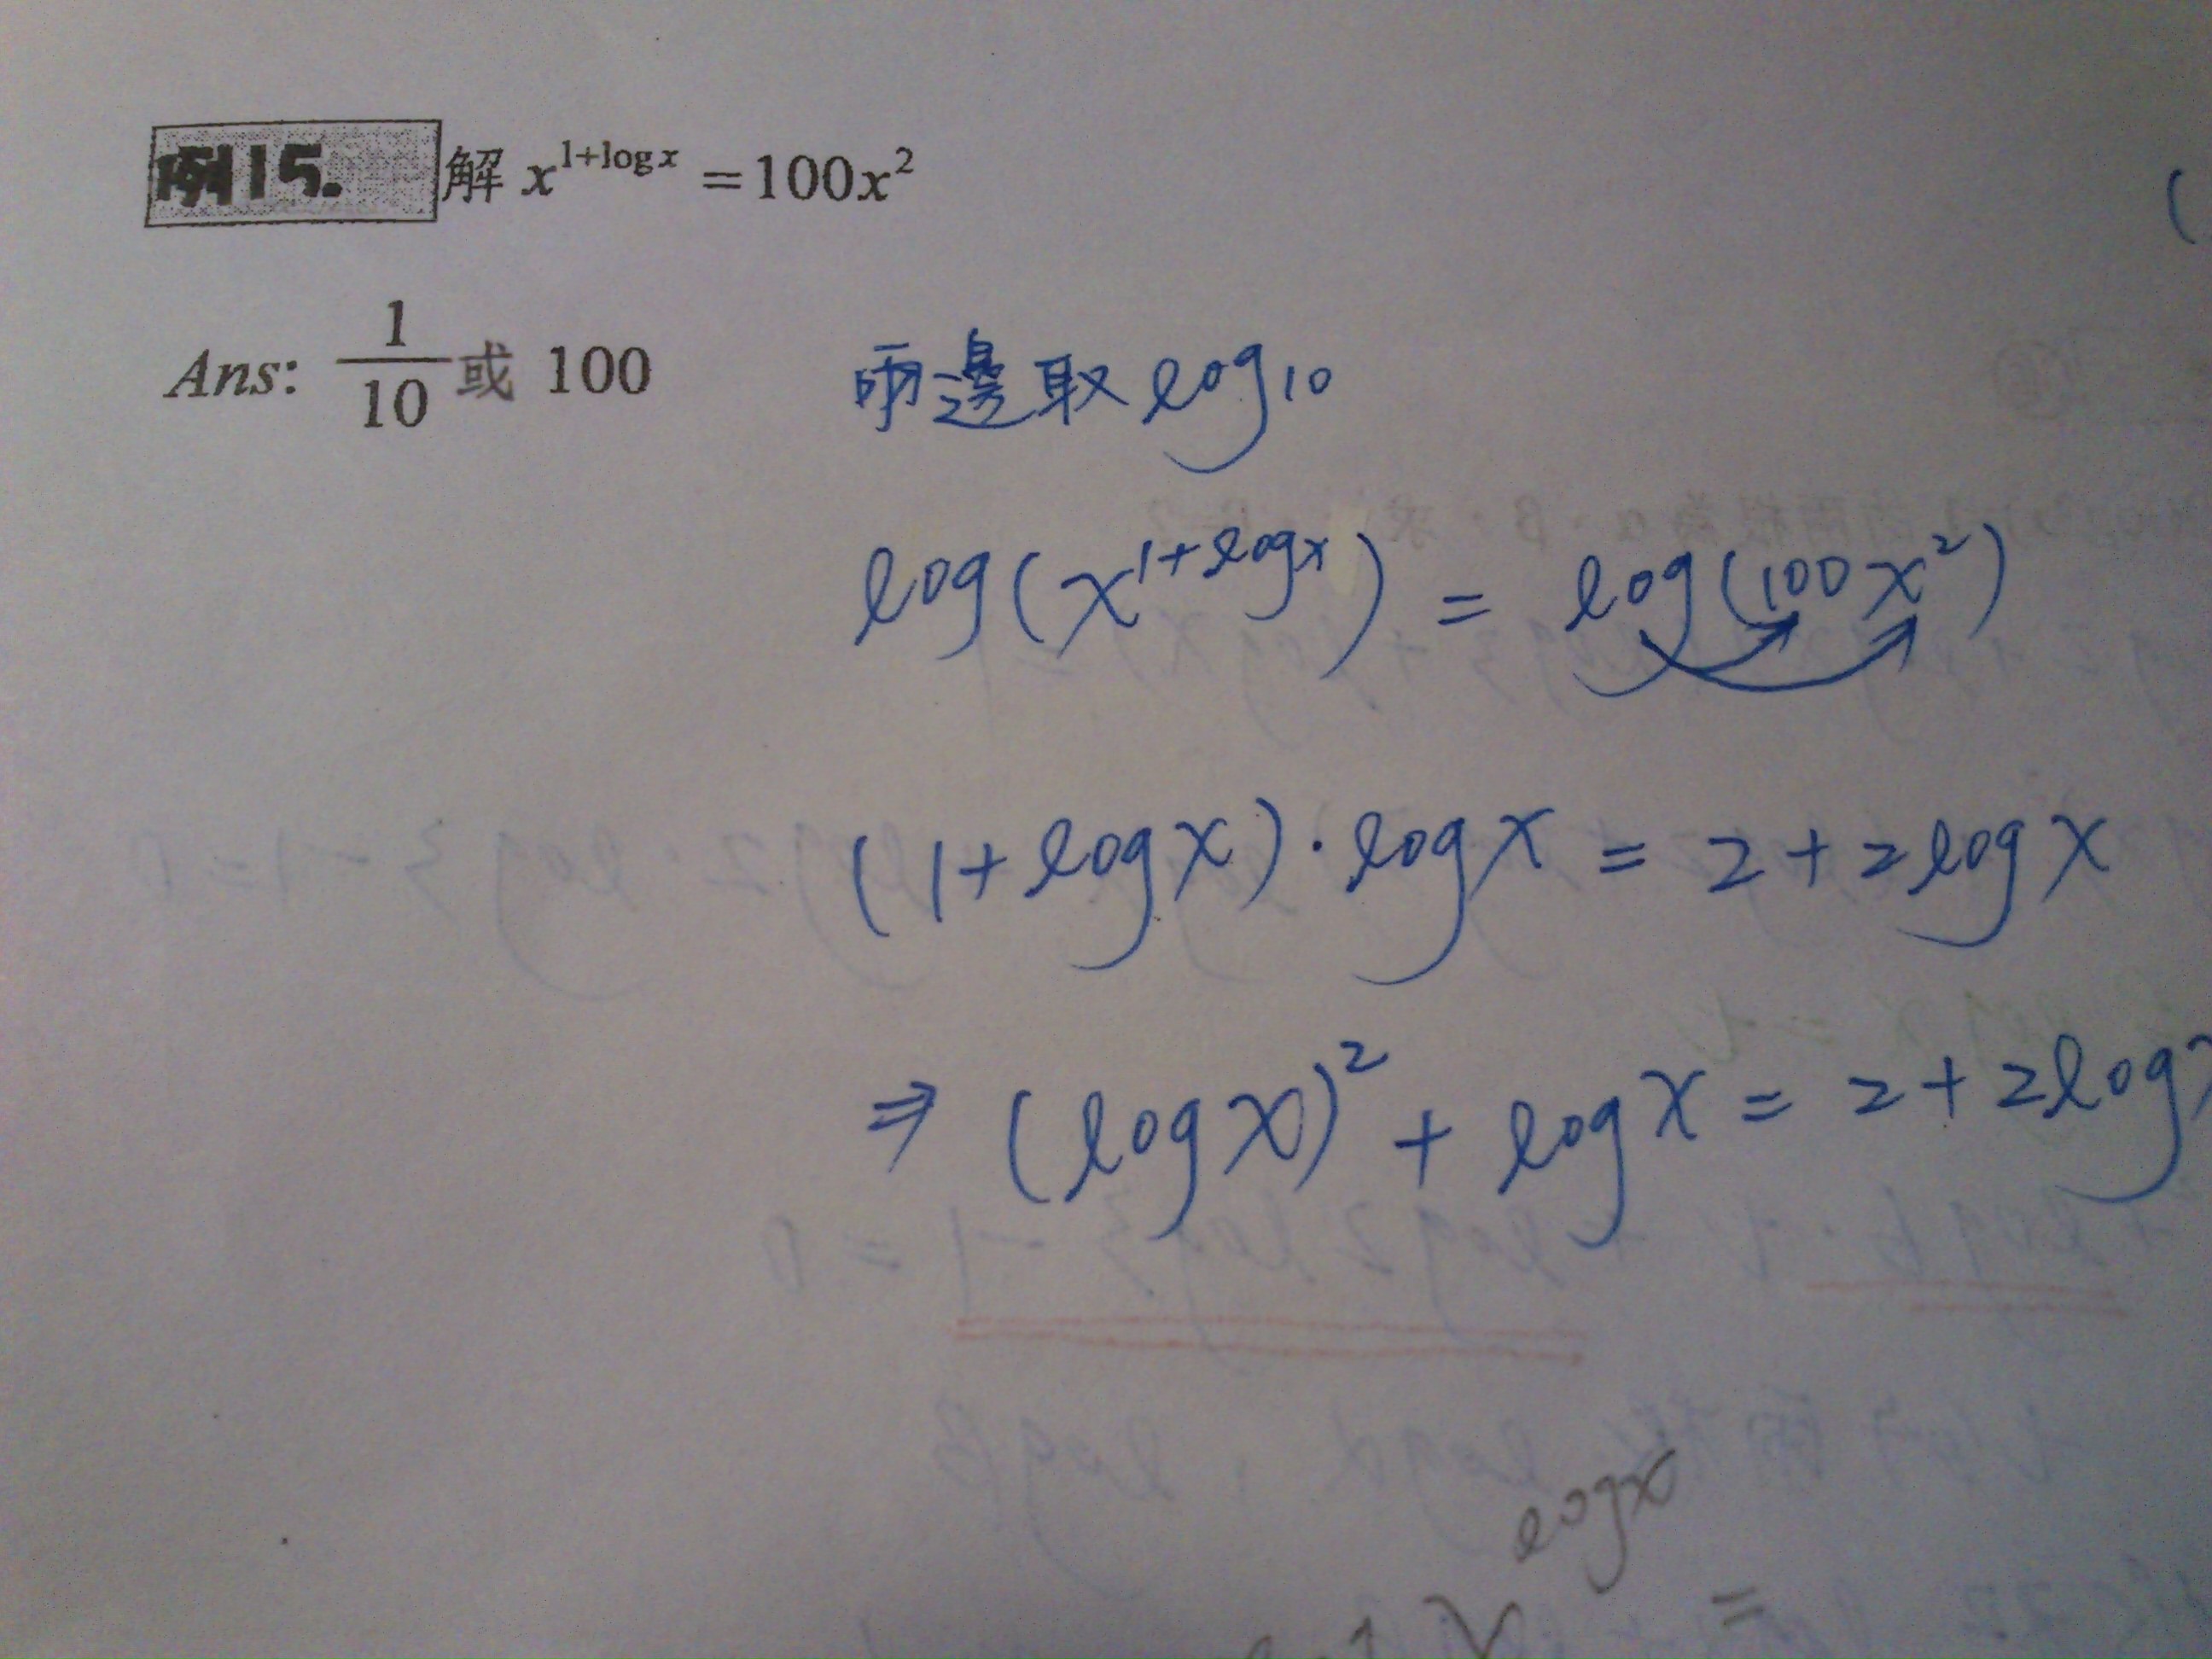 例15. 解 x^{1+log x} = 100x²
Ans: 1/10 或 100
兩邊取 log₁₀
log(x^{1+log x}) = log(100x²)
(1+log x)·log x = 2+2log x
⇒ (log x)² + log x = 2+2log x
log x
=